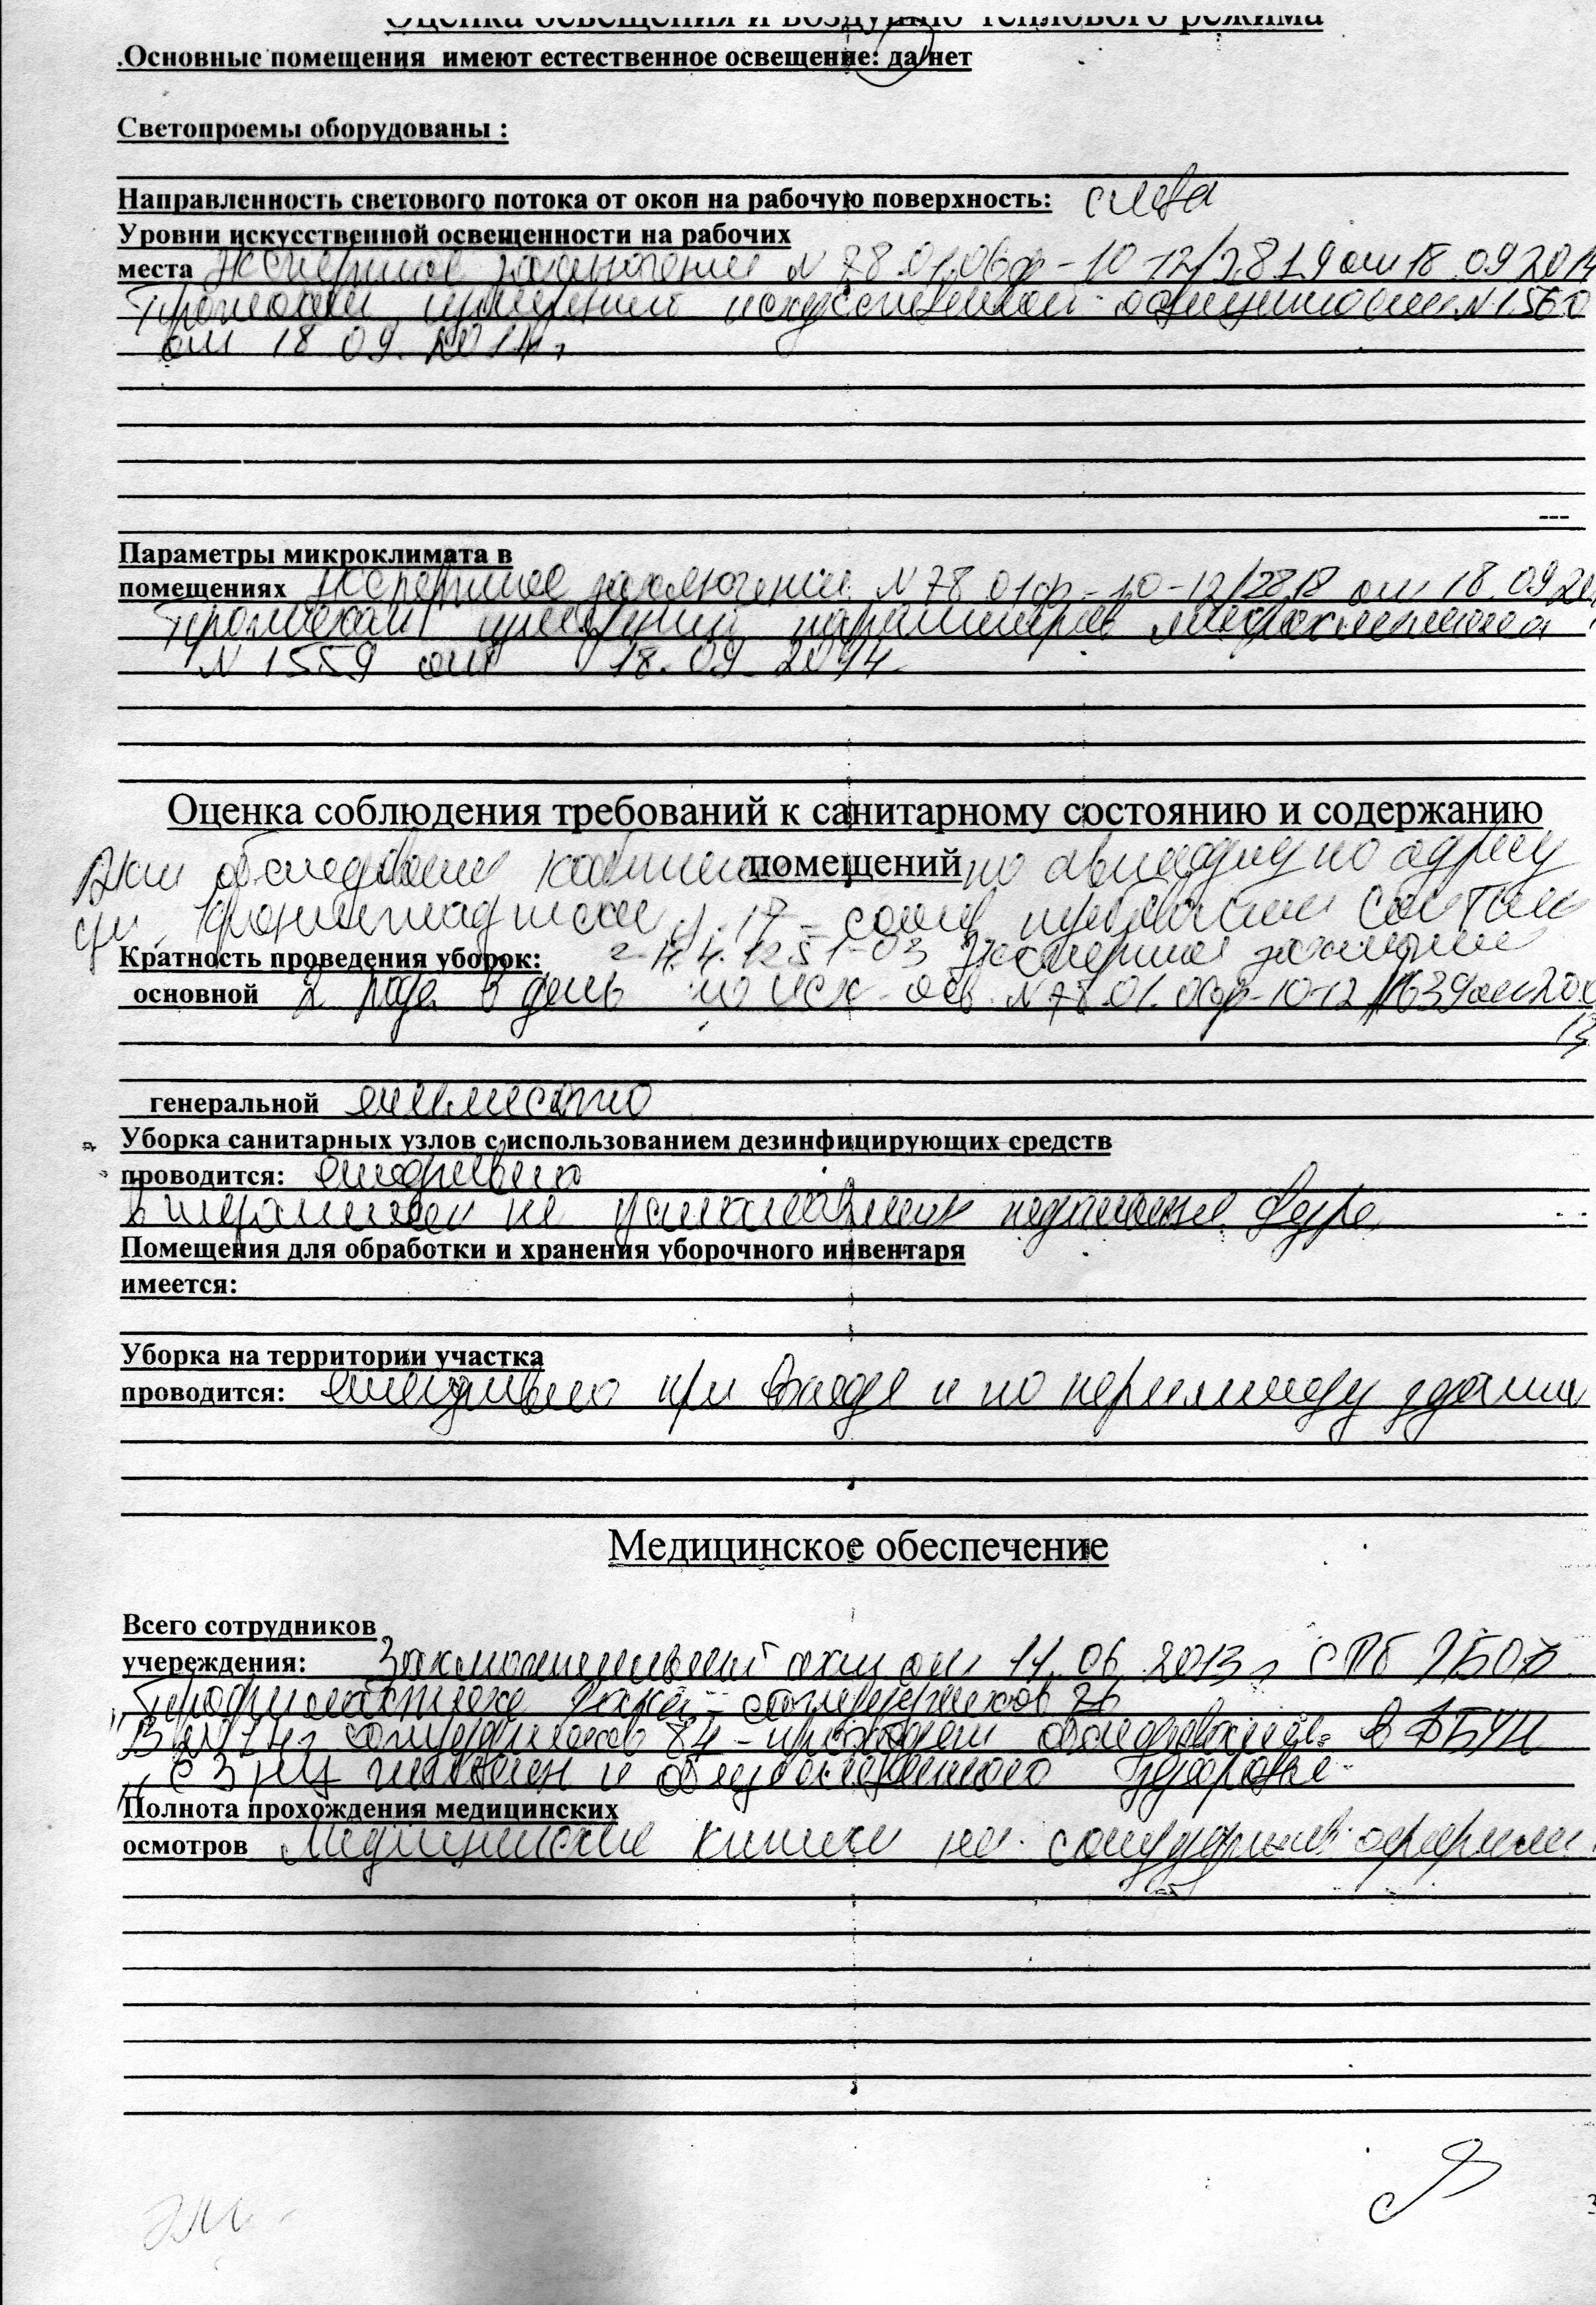 Оценка освещения и воздушно теплового режима
.Основные помещения имеют естественное освещение: да/нет
Светопроемы оборудованы :
Направленность светового потока от окон на рабочую поверхность: слева
Уровни искусственной освещенности на рабочих
места экспертное заключение N 78.01.06ф-10-12/2819 от 18 09 2014
Протокол измерений искусственной освещенности N 1560
от 18 09. 2014г.
Параметры микроклимата в
помещениях экспертное заключение N 78 01ф-10-12/2818 от 18.09 20
Протокол измерений параметров микроклимата
N 1559 от 18.09 2014
Оценка соблюдения требований к санитарному состоянию и содержанию
помещений
Акт обследования по адресу
ул. Кронштадтская д. 17 - соотв. требованиям СанПин
Кратность проведения уборок: 2.4.4.1251-03 Экспертное заключение
основной 2 раза в день по иск. осв. N 78.01.06ф-10-12/1639 от 20
13
генеральной ежемесячно
Уборка санитарных узлов с использованием дезинфицирующих средств
проводится: ежедневно
В не
Помещения для обработки и хранения уборочного инвентаря
имеется:
Уборка на территории участка
проводится: ежедневно при входе и по периметру здания
Медицинское обеспечение
Всего сотрудников
учереждения: Заключительный акт от 14.06 2013г СПб
сотрудников
сотрудников 84 - проходят обследование в ФБУН
" СЗНЦ гигиены и общественного здоровья
Полнота прохождения медицинских
осмотров Медицинские книжки на сотрудников оформлен
3